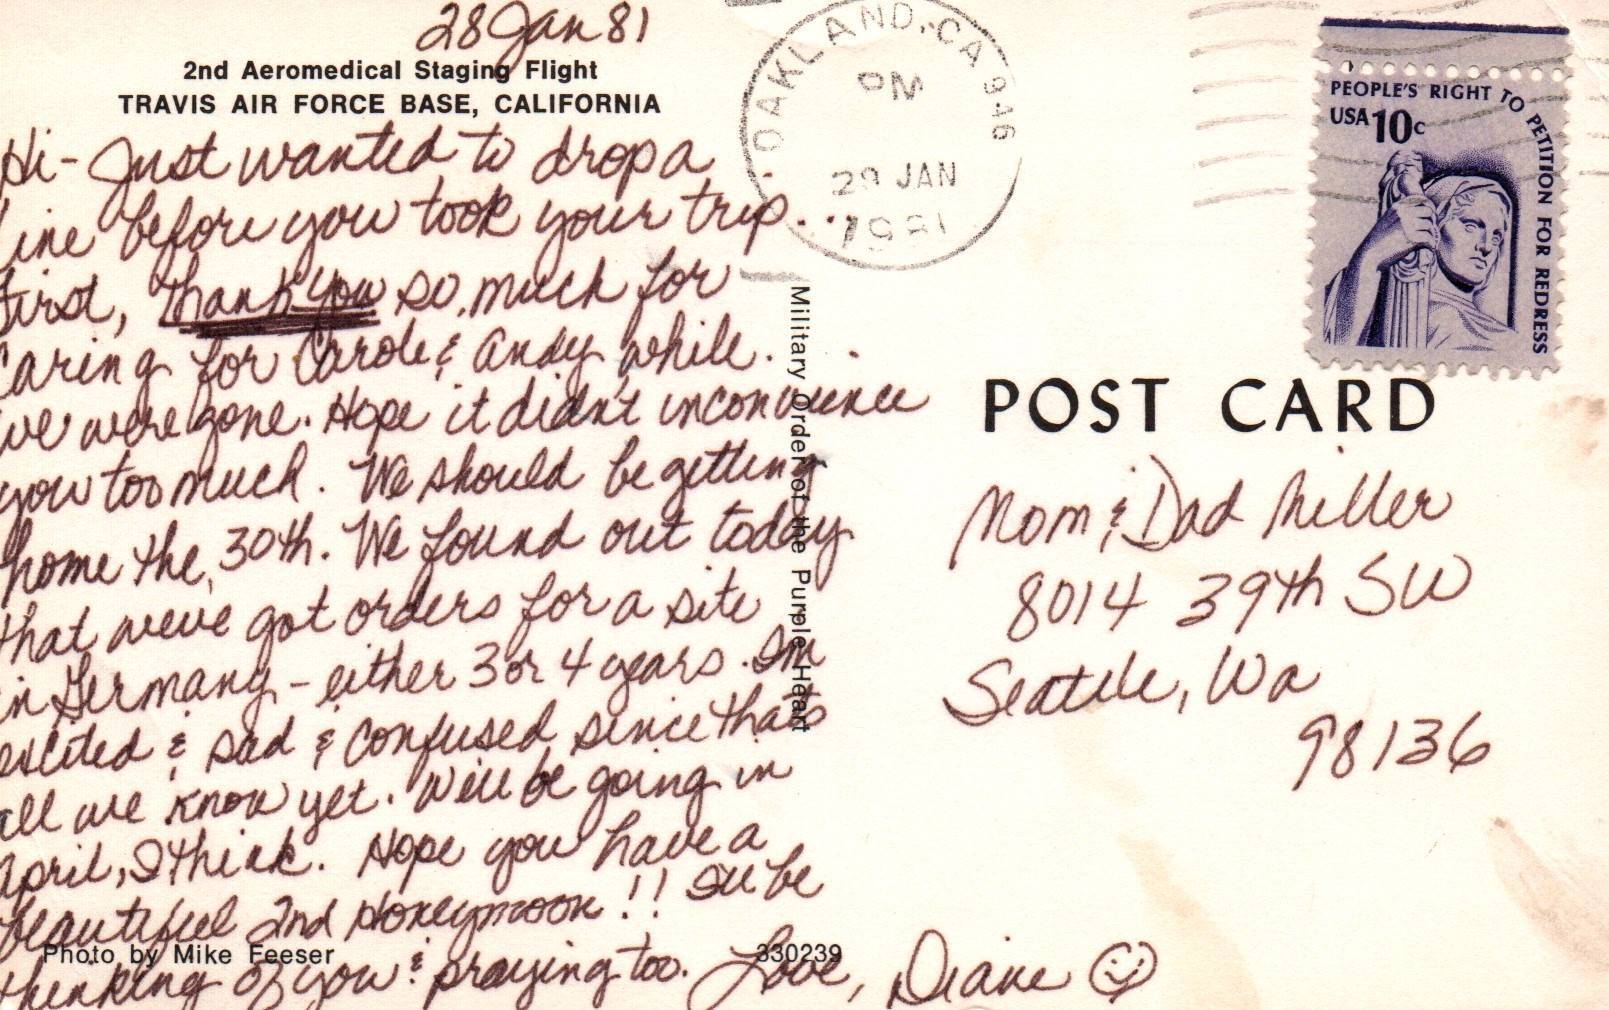 28 Jan 81
2nd Aeromedical Staging Flight
TRAVIS AIR FORCE BASE, CALIFORNIA
Hi - Just wanted to drop a
line before you took your trip...
First, Thank You so much for
caring for Carole & Andy while
we were gone. Hope it didn't inconvience
you too much. We should be getting
home the 30th. We found out today
that weve got orders for a site
in Germany - either 3 or 4 years. Im
excited & sad & confused since thats
all we know yet. We'll be going in
April, I think. Hope you have a
beautiful 2nd Honeymoon!! I'll be
thinking of you & praying too. Love, Diane
Photo by Mike Feeser
330239
Military Order of the Purple Heart
OAKLAND, CA 946
PM
29 JAN
1981
PEOPLE'S RIGHT TO PETITION FOR REDRESS
USA 10c
POST CARD
Mom & Dad Miller
8014 39th SW
Seattle, Wa
98136